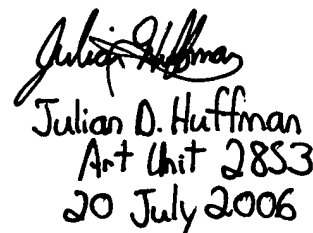 Julian Huffman
Julian D. Huffman
Art Unit 2853
20 July 2006